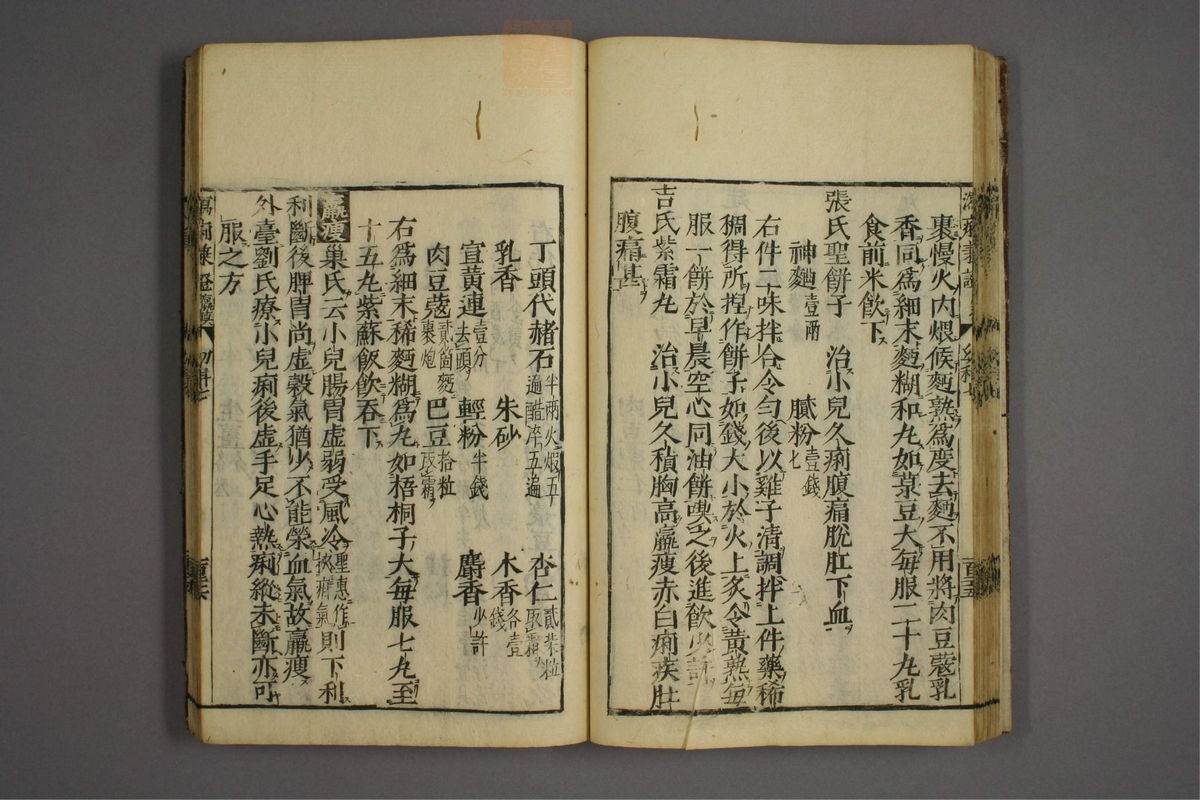 裹慢火内煨候麪熟爲度去麪不用將肉豆蔻乳
香同爲細末麪糊和丸如菉豆大每服二十九乳
食前米飲下
張氏聖餅子 治小兒久痢腹痛脫肛下血
神麯壹兩 膩粉壹錢七
右件二味拌合令勻後以雞子清調拌上件藥稀
稠得所捏作餅子如錢大小於火上炙令黃熟每
服一餅於早晨空心同油餅喫之後進飲少許
吉氏紫霜丸 治小兒久積胸高羸瘦赤白痢疾肚
腹痛甚
丁頭代赭石半兩火煅五遍醋淬五遍 杏仁貳拾粒取霜
乳香 朱砂 木香各壹錢
宣黃連壹分去頭 輕粉半錢 麝香少許
肉豆蔻貳箇麪裹炮 巴豆拾粒取霜
右爲細末稀麪糊爲丸如梧桐子大每服七丸至
十五丸紫蘇飯飲吞下
羸瘦 巢氏云小兒腸胃虛弱受風冷聖惠作挾疳氣則下利
利斷後脾胃尚虛穀氣猶少不能榮血氣故羸瘦
外臺劉氏療小兒痢後虛手足心熱痢縱未斷亦可
服之方